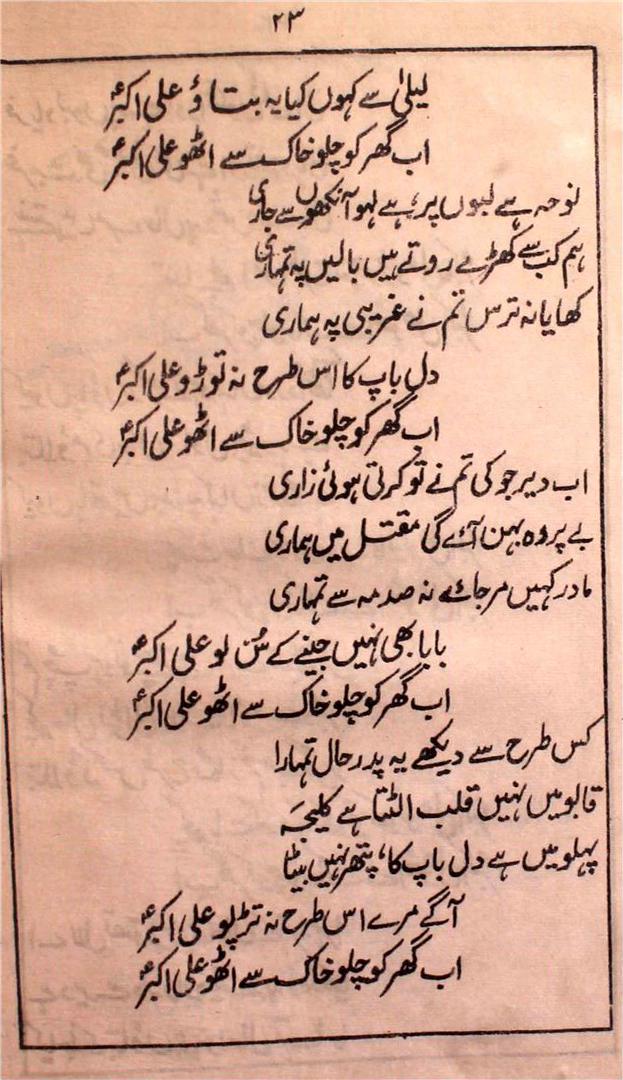 ۲۳
لیلیٰ سے کہوں کیا یہ بتاؤ علی اکبرؑ
اب گھر کو چلو خاک سے اٹھو علی اکبرؑ
نوحہ ہے لبوں پر، ہے لہو آنکھوں سے جاری
ہم کب سے کھڑے روتے ہیں بالیں پہ تمہاری
کھایا نہ ترس تم نے غریبی پہ ہماری
دل باپ کا اس طرح نہ توڑو علی اکبرؑ
اب گھر کو چلو خاک سے اٹھو علی اکبرؑ
اب دیر جو کی تم نے تو کرتی ہوئی زاری
بے پردہ بہن آئے گی مقتل میں ہماری
مادر کہیں مر جائے نہ صدمہ سے تمہاری
بابا بھی نہیں جینے کے سُن لو علی اکبرؑ
اب گھر کو چلو خاک سے اٹھو علی اکبرؑ
کس طرح سے دیکھے یہ پدر حال تمہارا
قابو میں نہیں قلب الٹتا ہے کلیجہ
پہلو میں ہے دل باپ کا، پتھر نہیں بیٹا
آگے مرے اس طرح نہ تڑپو علی اکبرؑ
اب گھر کو چلو خاک سے اٹھو علی اکبرؑ